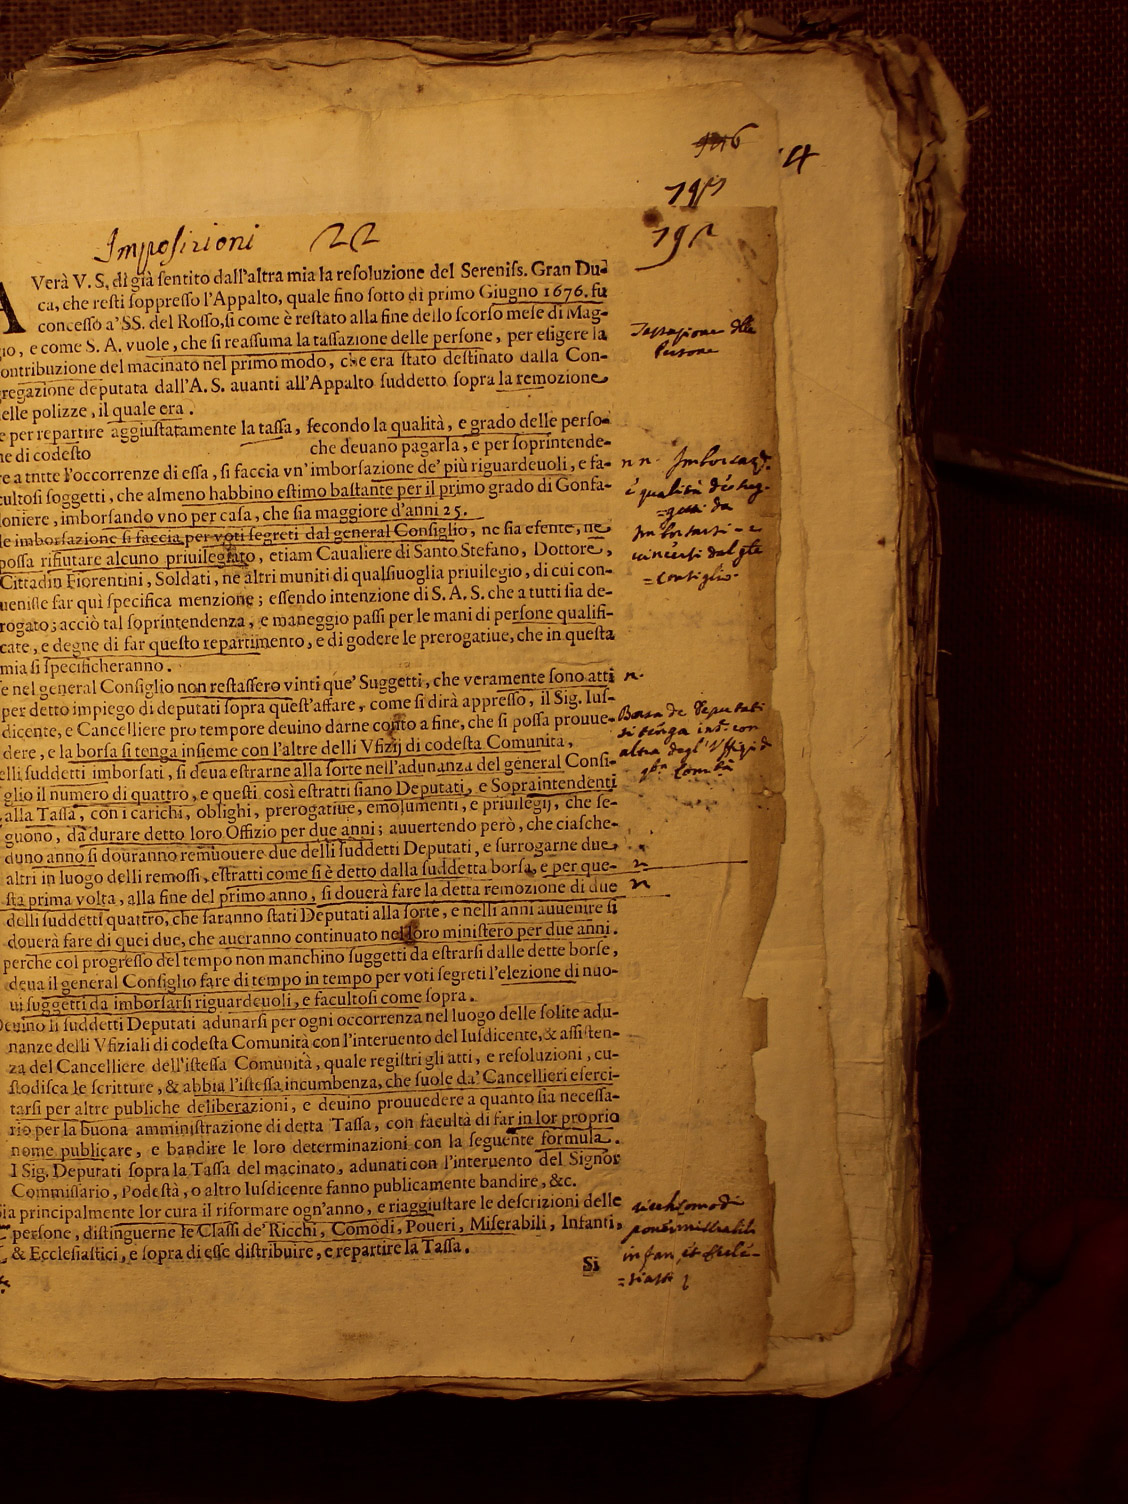 4
Imposizioni 22
AVerà V. S, di già sentito dall'altra mia la resoluzione del Sereniss. Gran Du-
ca, che resti soppresso l'Appalto, quale fino sotto dì primo Giugno 1676. fu
concesso a' SS. del Rosso, si come è restato alla fine dello scorso mese di Mag-
gio, e come S. A. vuole, che si reassuma la tassazione delle persone, per esigere la
ontribuzione del macinato nel primo modo, che era stato destinato dalla Con-
gregazione deputata dall'A. S. auanti all'Appalto suddetto sopra la remozione
elle polizze, il quale era.
e per repartire aggiustatamente la tassa, secondo la qualità, e grado delle perso-
ne di codesto che deuano pagarla, e per soprintende-
re a tntte l'occorrenze di essa, si faccia vn'imborsazione de' più riguardeuoli, e fa-
cultosi soggetti, che almeno habbino estimo bastante per il primo grado di Gonfa-
loniere, imborsando vno per casa, che sia maggiore d'anni 25.
le imborsazione si faccia per voti segreti dal general Consiglio, ne sia esente, ne
possa rifiutare alcuno priuilegiato, etiam Caualiere di Santo Stefano, Dottore,
Cittadin Fiorentini, Soldati, ne altri muniti di qualsiuoglia priuilegio, di cui con-
uenisse far quì specifica menzione; essendo intenzione di S. A. S. che a tutti sia de-
rogato; acciò tal soprintendenza, e maneggio passi per le mani di persone qualifi-
cate, e degne di far questo repartimento, e di godere le prerogatiue, che in questa
mia si specificheranno.
e nel general Consiglio non restassero vinti que' Suggetti, che veramente sono atti
per detto impiego di deputati sopra quest'affare, come si dirà appresso, il Sig. Ius-
dicente, e Cancelliere pro tempore deuino darne conto a fine, che si possa prouue-
dere, e la borsa si tenga insieme con l'altre delli Vfizij di codesta Comunita,
elli suddetti imborsati, si deua estrarne alla sorte nell'adunanza del general Consi-
glio il numero di quattro, e questi così estratti siano Deputati, e Sopraintendenti
alla Tassa, con i carichi, oblighi, prerogatiue, emolumenti, e priuilegij, che se-
guono, da durare detto loro Offizio per due anni; auuertendo però, che ciasche-
duno anno si douranno remuouere due delli suddetti Deputati, e surrogarne due
altri in luogo delli remossi, estratti come si è detto dalla suddetta borsa, e per que-
sta prima volta, alla fine del primo anno, si douerà fare la detta remozione di due
delli suddetti quattro, che saranno stati Deputati alla sorte, e nelli anni auuenire si
douerà fare di quei due, che aueranno continuato nel loro ministero per due anni.
perche col progresso del tempo non manchino suggetti da estrarsi dalle dette borse,
deua il general Consiglio fare di tempo in tempo per voti segreti l'elezione di nuo-
ui suggetti da imborsarsi riguardeuoli, e facultosi come sopra.
Deuino li suddetti Deputati adunarsi per ogni occorrenza nel luogo delle solite adu-
nanze delli Vfiziali di codesta Comunità con l'interuento del Iusdicente, & assisten-
za del Cancelliere dell'istessa Comunità, quale registri gli atti, e resoluzioni, cu-
stodisca le scritture, & abbia l'istessa incumbenza, che suole da' Cancellieri eserci-
tarsi per altre publiche deliberazioni, e deuino prouuedere a quanto sia necessa-
rio per la buona amministrazione di detta Tassa, con facultà di far in lor proprio
nome publicare, e bandire le loro determinazioni con la seguente formula.
I Sig. Deputati sopra la Tassa del macinato, adunati con l'interuento del Signor
Commissario, Podestà, o altro Iusdicente fanno publicamente bandire, &c.
Sia principalmente lor cura il riformare ogn'anno, e riaggiustare le descrizioni delle
persone, distinguerne le Classi de' Ricchi, Comodi, Poueri, Miserabili, Infanti,
& Ecclesiastici, e sopra di esse distribuire, e repartire la Tassa.
Si
Tassazione delle
Persone
n n. Imborsaz.e
e qualità de sug-
=getti da
Imborsarsi - e
vincersi dal gle
=Consiglio.
n.
Borsa de Deputati
si tenga ins.e con
altre degl' Uffizi d
Comtà
n
n
ricchi comodi
poueri miserabili
infan. et Eccle-
=siasti